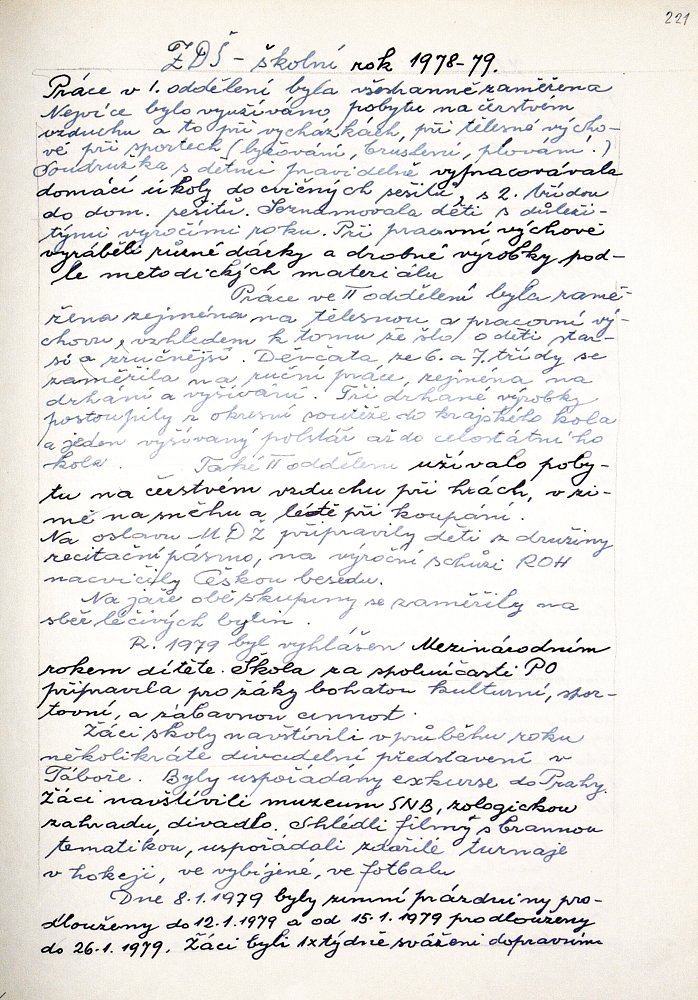 221
ZDŠ - školní rok 1978-79.
Práce v 1. oddělení byla všestranně zaměřena
Nejvíce bylo využíváno pobytu na čerstvém
vzduchu a to při vycházkách, při tělesné výcho-
vě při sportech (lyžování, bruslení, plování.)
Soudružka s dětmi pravidelně vypracovávala
domácí úkoly do cvičných sešitů, s 2. třídou
do dom. sešitů. Seznamovala děti s důleži-
tými výročími roku. Při pracovní výchově
vyráběli různé dárky a drobné výrobky pod-
le metodických materiálu
Práce ve II oddělení byla zamě-
řena zejména na tělesnou a pracovní vý-
chovu, vzhledem k tomu že šlo o děti star-
ší a zručnější. Děvčata ze 6. a 7. třídy se
zaměřila na ruční práce, zejména na
drhání a vyšívání. Tři drhané výrobky
postoupily z okresní soutěže do krajského kola
a jeden vyšívaný polštář až do celostátního
kola. Také II oddělení užívalo poby-
tu na čerstvém vzduchu při hrách, v zi-
mě na sněhu a létě při koupání.
Na oslavu MDŽ připravily děti z družiny
recitační pásmo, na výroční schůzi ROH
nacvičily Českou besedu.
Na jaře obě skupiny se zaměřily na
sběr léčivých bylin.
R. 1979 byl vyhlášen Mezinárodním
rokem dítěte. Škola za spoluúčasti PO
připravila pro žáky bohatou kulturní, spor-
tovní, a zábavnou činnost.
Žáci školy navštívili v průběhu roku
několikráte divadelní představení v
Táboře. Byly uspořádány exkurse do Prahy.
Žáci navštívili muzeum SNB, zologickou
zahradu, divadlo. Shlédli filmy s brannou
tematikou, uspořádali zdařilé turnaje
v hokeji, ve vybíjené, ve fotbalu
Dne 8.1.1979 byly zimní prázdniny pro-
dlouženy do 12.1.1979 a od 15.1.1979 prodlouženy
do 26.1.1979. Žáci byli 1x týdně sváženi dopravním